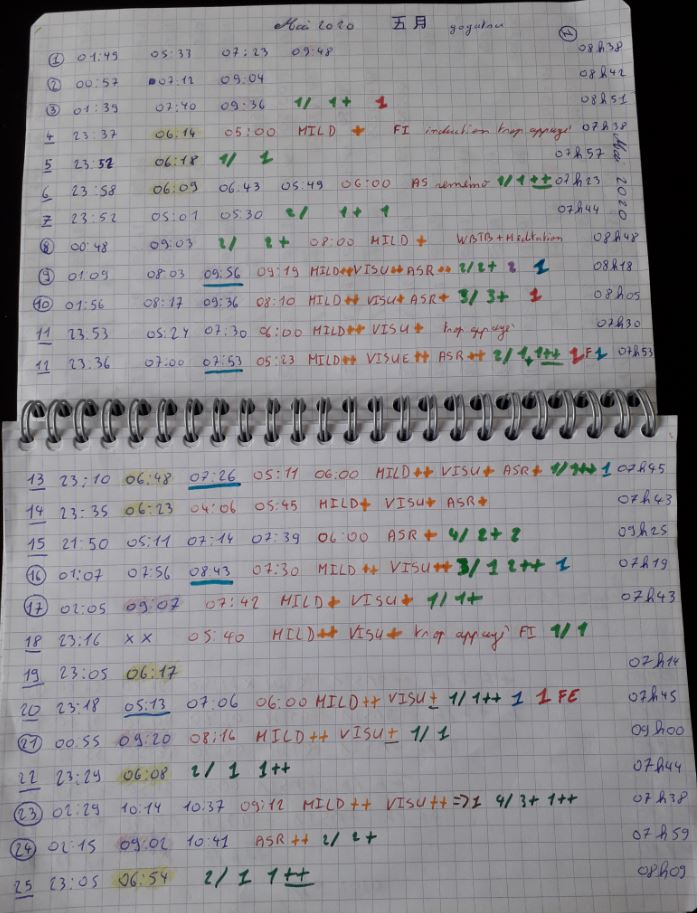 Mai 2020 五月 gogatsu
① 01:49 05:33 07:23 09:48 08h38
② 00:57 07:12 09:04 08h42
③ 01:39 07:40 09:36 1/ 1+ 1 08h51
4 23:37 06:14 05:00 MILD + FI induction trop appuyé 07h38
5 23:52 06:18 1/ 1 07h57
6 23:58 06:09 06:43 05:49 06:00 AS remémo 1/1++ 07h23
7 23:52 05:01 05:30 2/ 1+ 1 07h44
Mai 2020
⑧ 00:48 09:03 2/ 2+ 08:00 MILD + WBTB + Méditation 08h48
⑨ 01:09 08:03 09:56 09:19 MILD++ VISU++ ASR++ 2/2+ 2 1 08h18
⑩ 01:56 08:17 09:36 08:10 MILD++ VISU+ ASR+ 3/3+ 1 08h05
11 23.53 05:24 07:30 06:00 MILD++ VISU+ trop appuyé 07h30
12 23.36 07:00 07:53 05:23 MILD++ VISUE++ ASR++ 2/1,1++ 1FI 07h53
13 23:10 06:48 07:26 05:11 06:00 MILD++ VISU+ ASR+ 1/1++ 1 07h45
14 23:35 06:23 04:06 05:45 MILD+ VISU+ ASR+ 07h43
15 21:50 05:11 07:14 07:39 06:00 ASR+ 4/2+2 09h25
⑯ 01:07 07:56 08:43 07:30 MILD++ VISU++ 3/1 2++ 1 07h19
⑰ 02:05 09:07 07:42 MILD+ VISU+ 1/1+ 07h43
18 23:16 x x 05:40 MILD++ VISU+ trop appuyé FI 1/1
19 23:05 06:17 07h14
20 23:18 05:13 07:06 06:00 MILD++ VISU± 1/1++ 1 1 FE 07h45
㉑ 00:55 09:20 08:16 MILD++ VISU± 1/1 09h00
22 23:29 06:08 2/ 1 1++ 07h44
㉓ 02:29 10:14 10:37 09:12 MILD++ VISU++ =>1 4/3+ 1++ 07h38
㉔ 02:15 09:02 10:41 ASR++ 2/2+ 07h59
25 23:05 06:54 2/ 1 1++ 08h09